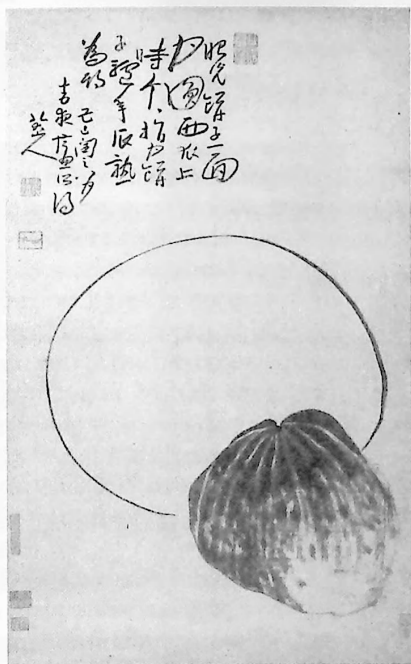 眼光餅子一面
月圓西瓜上
時个个指月餅
子驢年瓜熟
為期
己巳閏八月
十五夜畫所得
八大山人